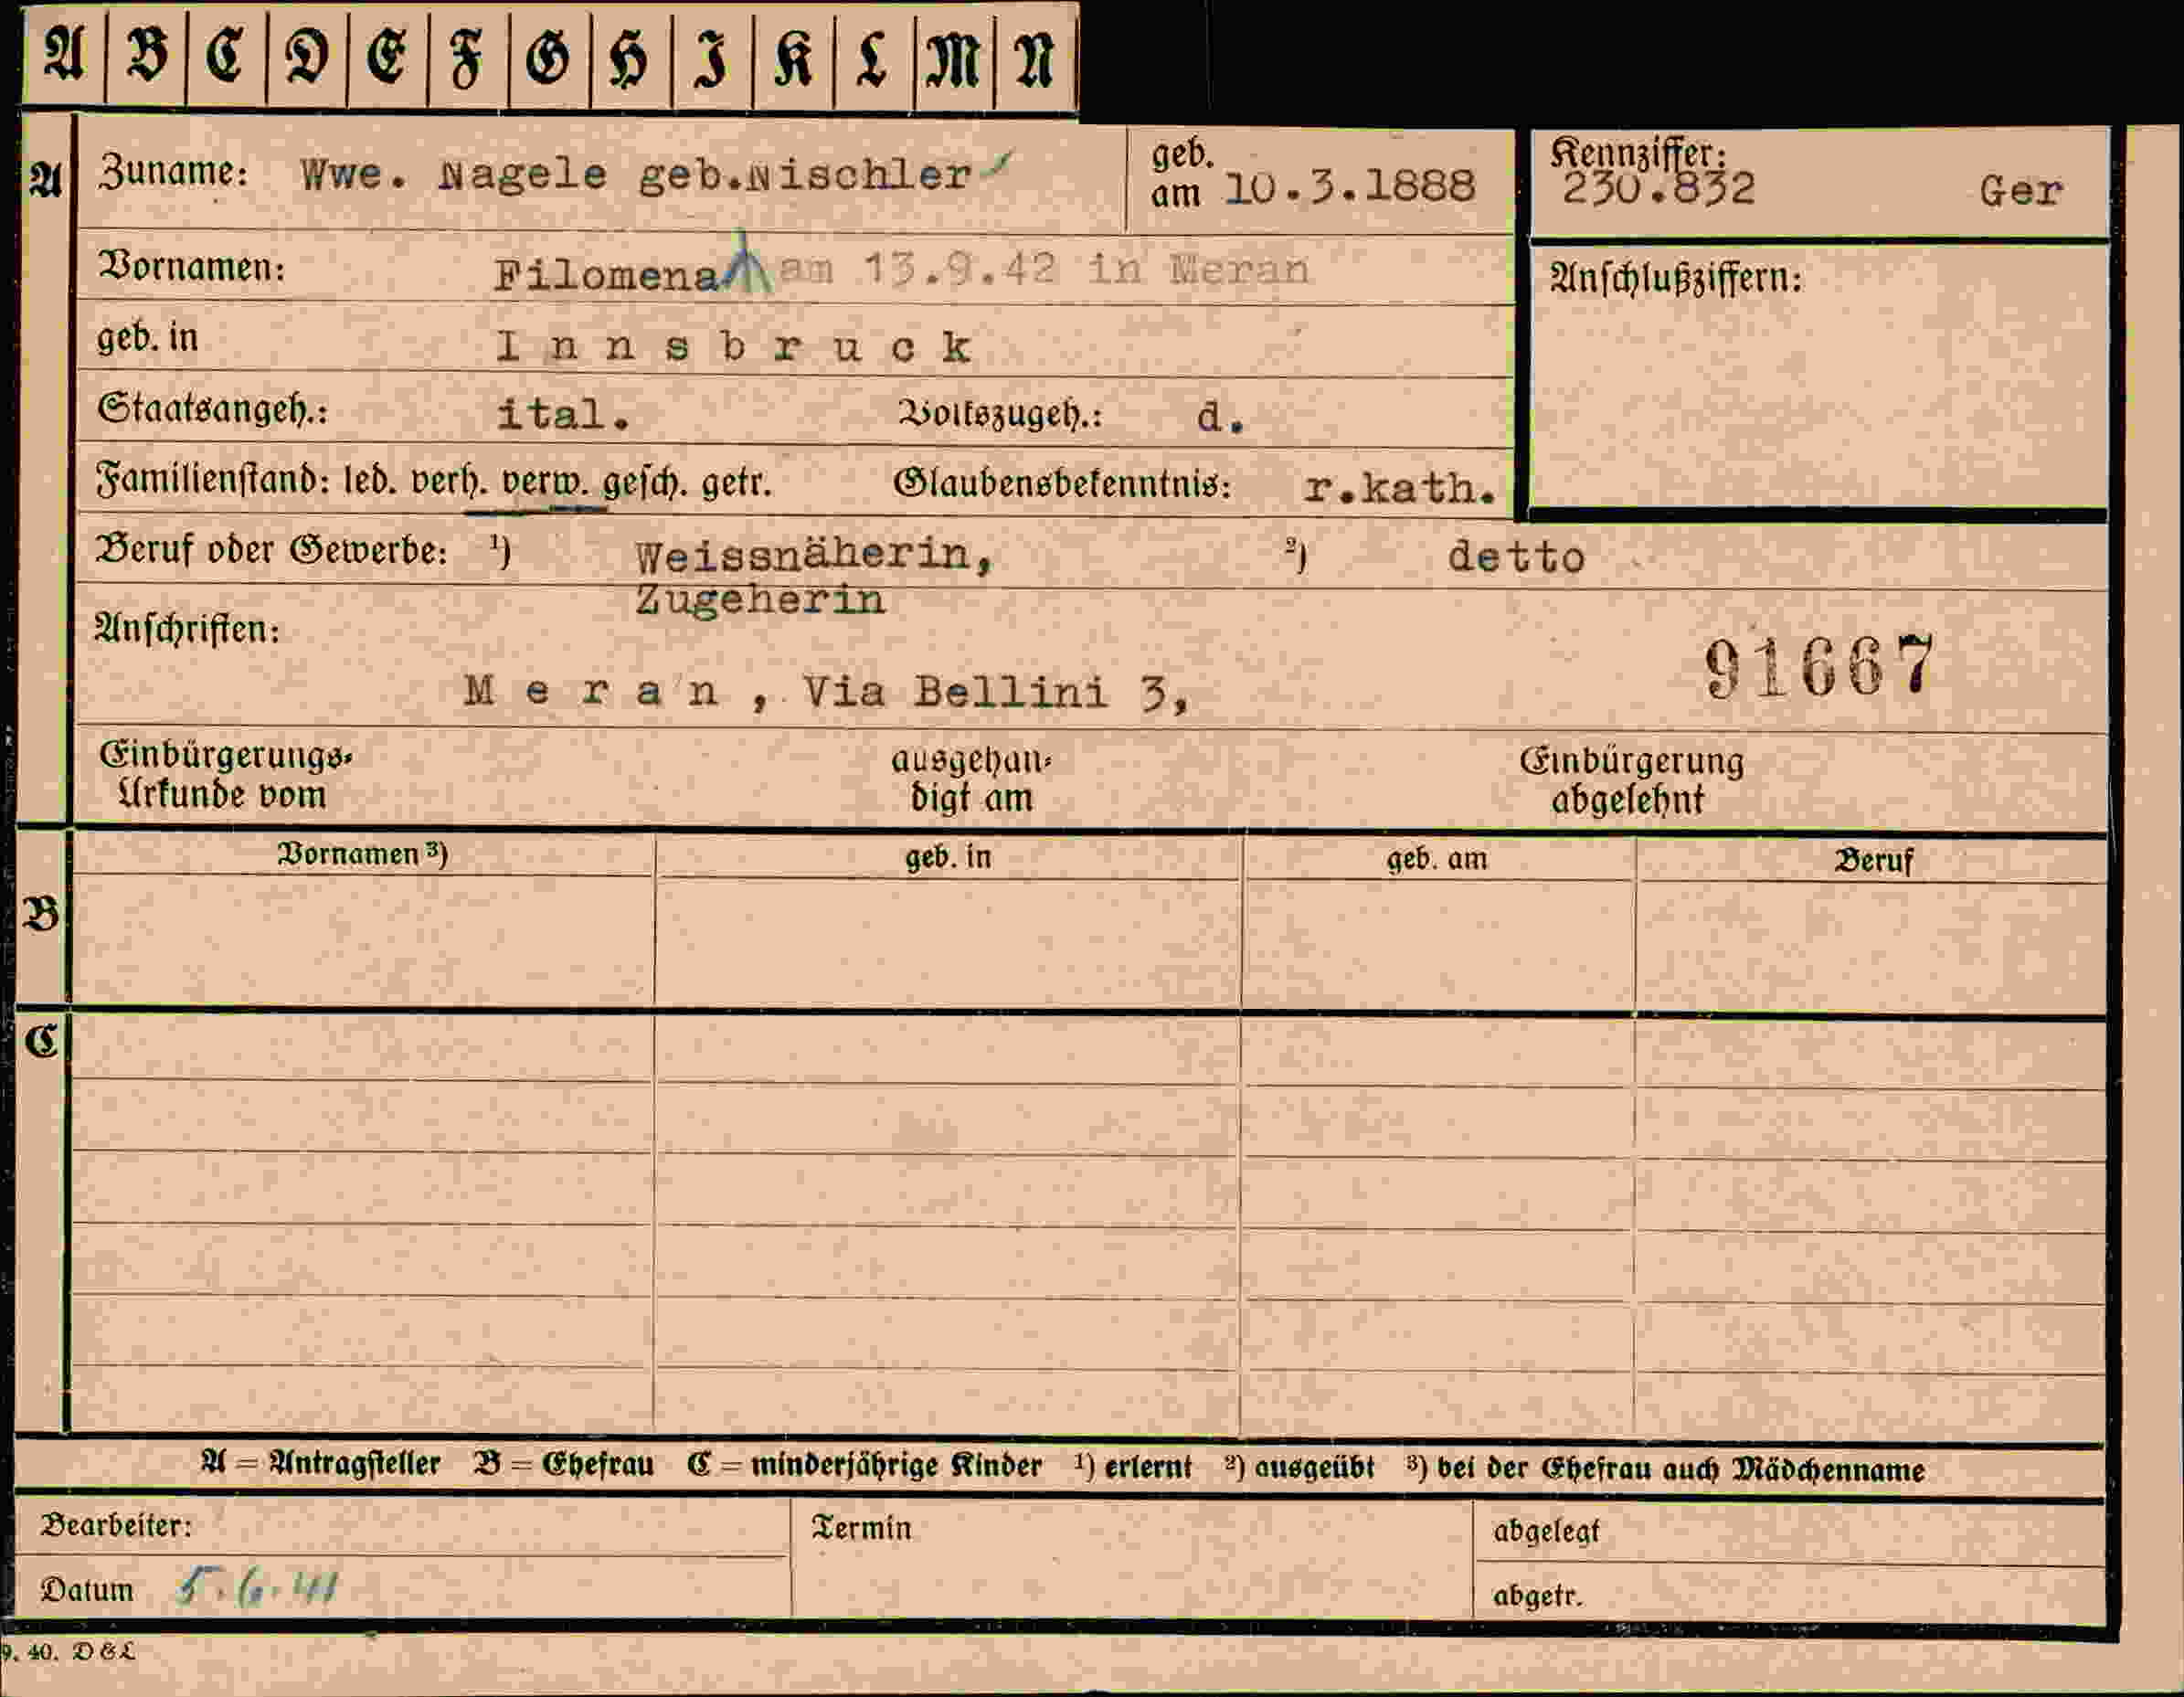 A B C D E F G H I K L M N
A Zuname: Wwe. Nagele geb.Nischler geb. am 10.3.1888 Kennziffer: 230.832 Ger
Vornamen: Filomena am 13.9.42 in Meran Anschlußziffern:
geb. in Innsbruck
Staatsangeh.: ital. Volkszugeh.: d.
Familienstand: led. verh. verw. gesch. getr. Glaubensbekenntnis: r.kath.
Beruf oder Gewerbe: 1) Weissnäherin, 2) detto
Zugeherin
Anschriften:
91667
Meran, Via Bellini 3,
Einbürgerungs- ausgehän- Einbürgerung
Urkunde vom digt am abgelehnt
Vornamen 3) geb. in geb. am Beruf
B
C
A = Antragsteller B = Ehefrau C = minderjährige Kinder 1) erlernt 2) ausgeübt 3) bei der Ehefrau auch Mädchenname
Bearbeiter: Termin abgelegt
Datum 5.6.41 abgetr.
9. 40. D&L